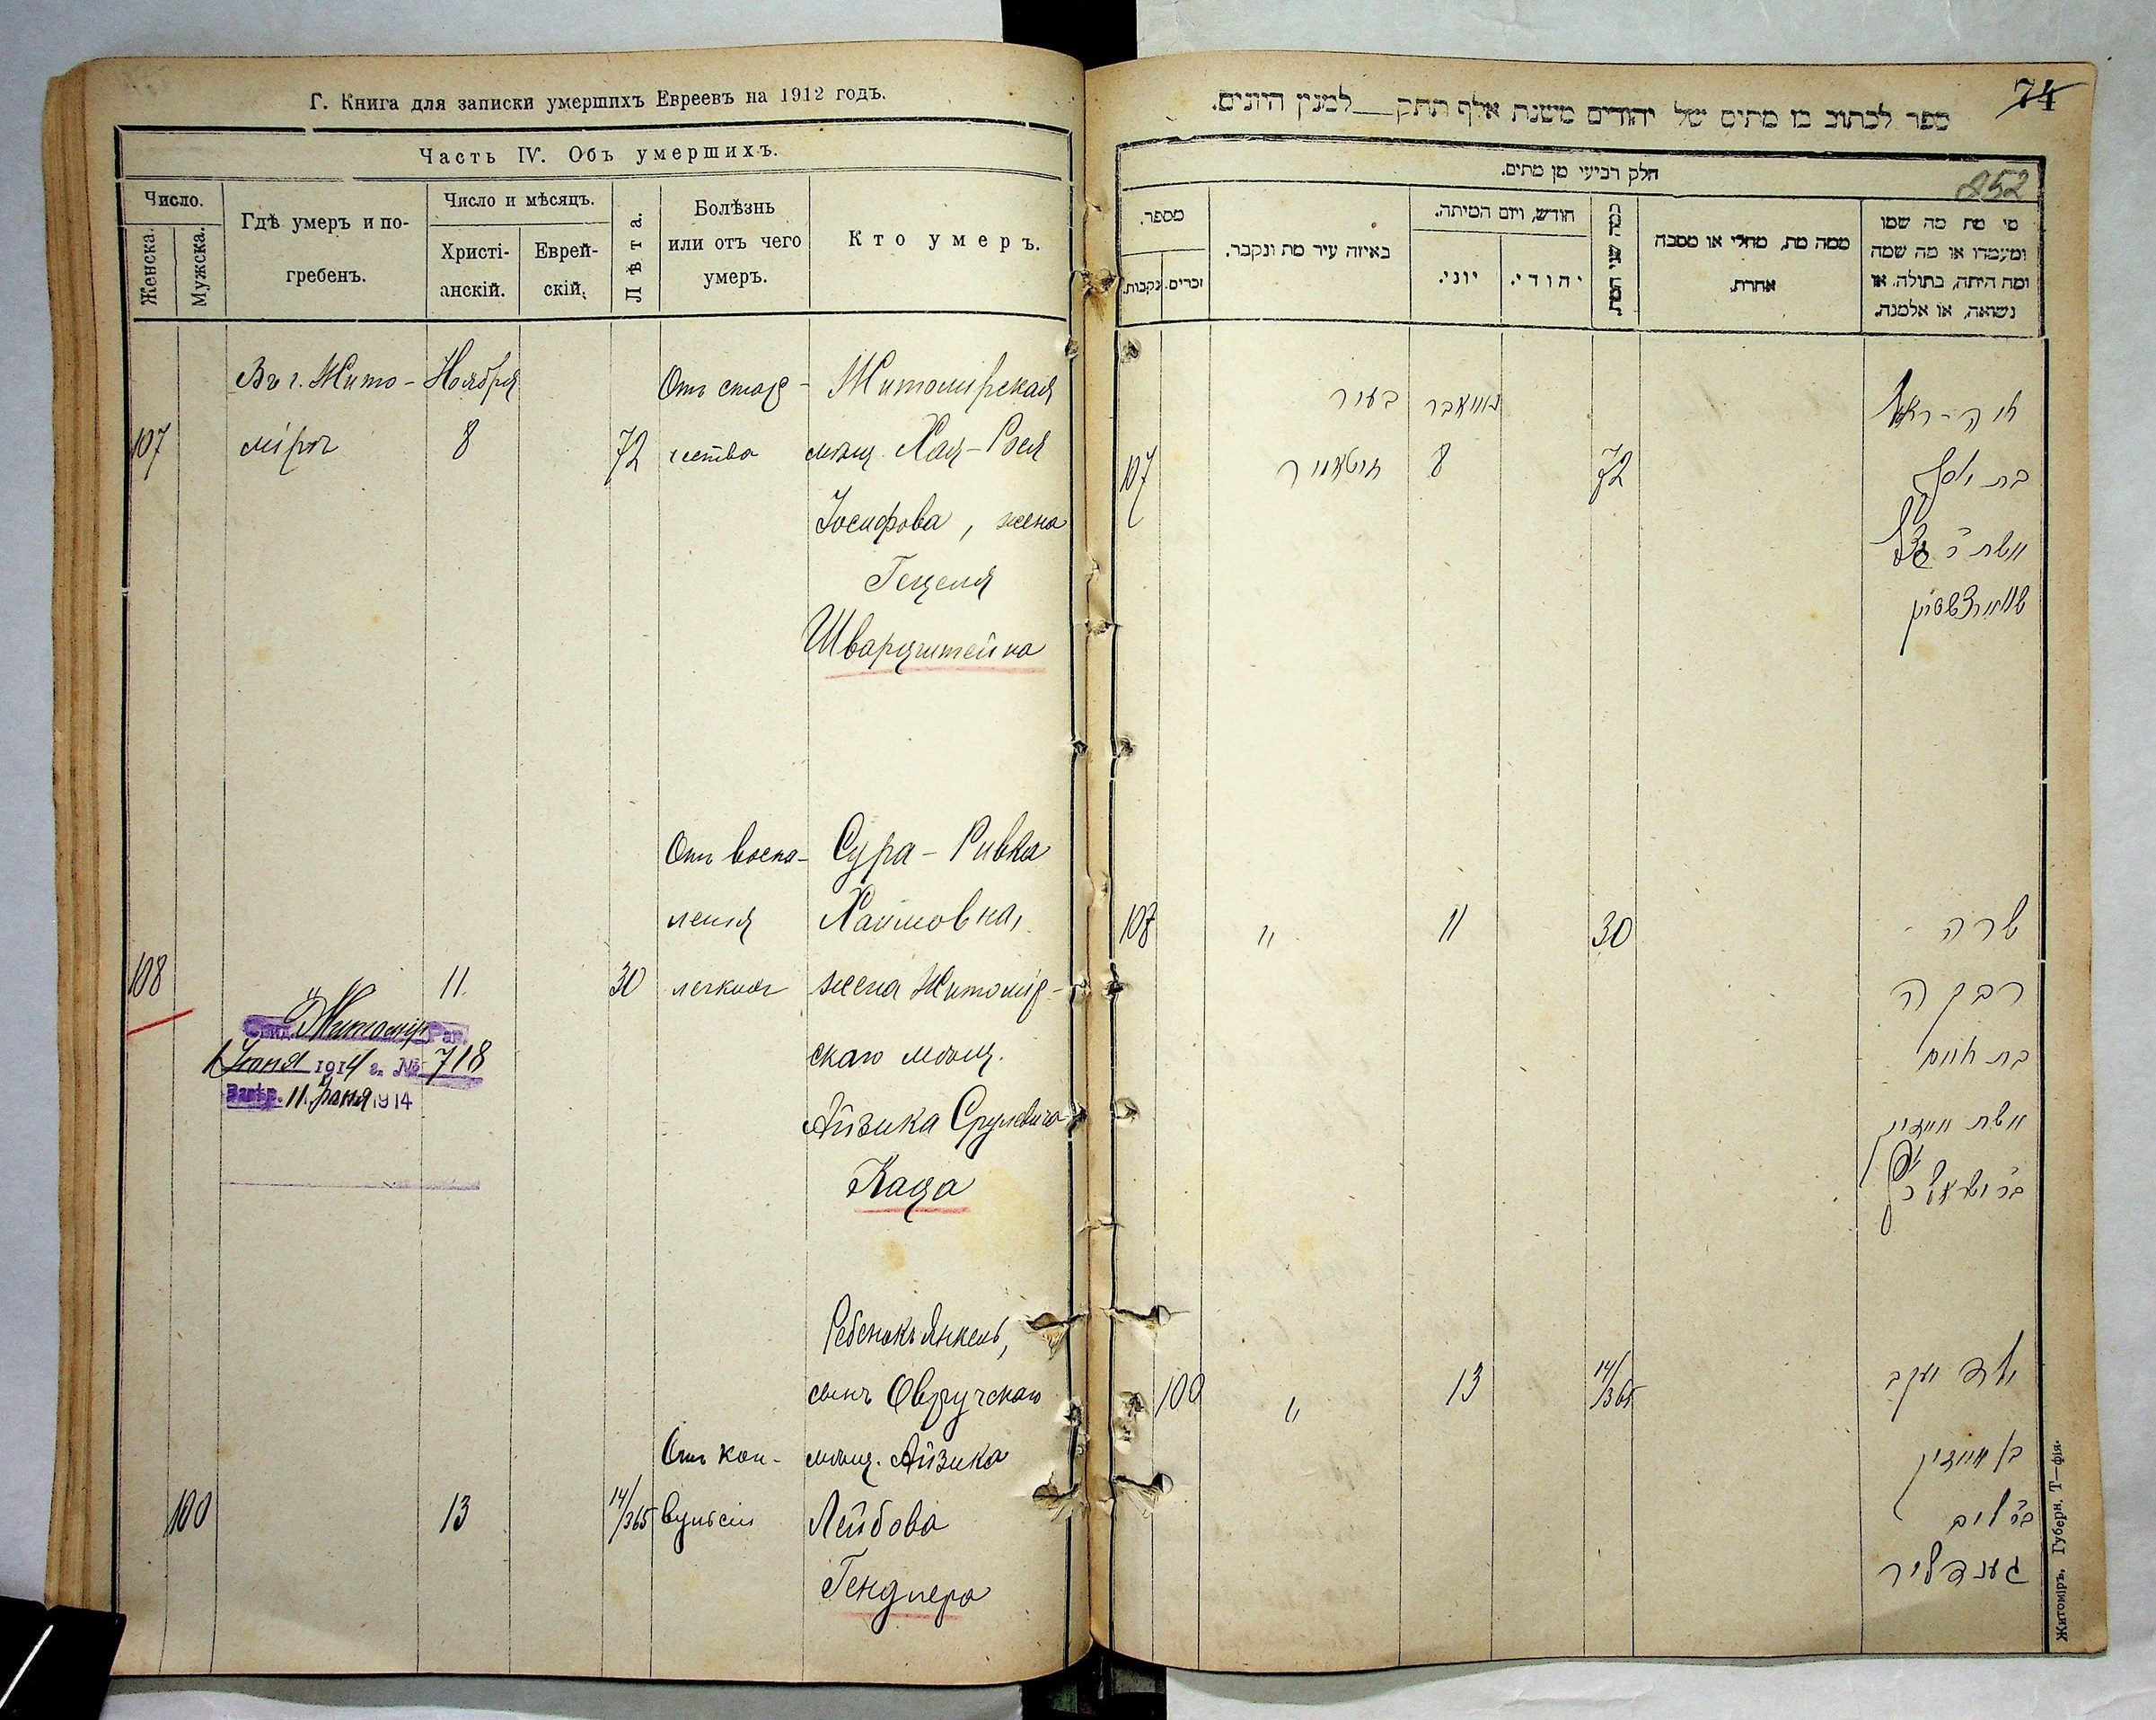 Г. Книга для записки умершихъ Евреевъ на 1912 годъ.
Часть IV. Объ умершихъ.
Число.
Женска.
Мужска.
Гдѣ умеръ и по-
гребенъ.
Число и мѣсяцъ.
Христі-
анскій.
Еврей-
скій.
Лѣта.
Болѣзнь
или отъ чего
умеръ.
Кто умеръ.
107
Въ г. Жито-
мірѣ
Ноября
8
72
Отъ стар-
чества
Житомирская
мѣщ. Хая-Рейзя
Іосифова, жена
Гецеля
Шварцштейна
108
11
30
Отъ воспа-
ленія
легкихъ
Сура-Ривка
Хаимовна,
жена Житомір-
скаго мѣщ.
Айзика Срулевича
Каца
Житомір
1914 г. № 718
11 1914
100
13
14/365
Отъ кон-
вульсіи
Ребенокъ Янкель,
сынъ Овручскаго
мѣщ. Айзика
Лейбова
Гендлера
74
852
ספר לכתוב בו מתים של יהודים משנת אלף תתק למנין היונים.
חלק רביעי מן מתים.
מספר.
נקבות.
זכרים.
באיזה עיר מת ונקבר.
חודש, ויום המיתה.
יוני.
יהודי.
כמה שני המת
ממה מת, מחלי או מסבה
אחרת.
מי מת מה שמו
ומעמדו או מה שמה
ומה היתה, בתולה, או
נשואה, או אלמנה.
107
בעיר
זיטאמיר
נאיאבר
8
72
בת יוסף
אשת ר'
שווארצשטיין
108
"
11
30
שרה
רבקה
בת חיים
אשת אייזיק
בר ישראל כץ
100
"
13
14/365
ילד יעקב
בן אייזיק
בר ליב
גענדליר
Житоміръ, Губерн. Т—фія.